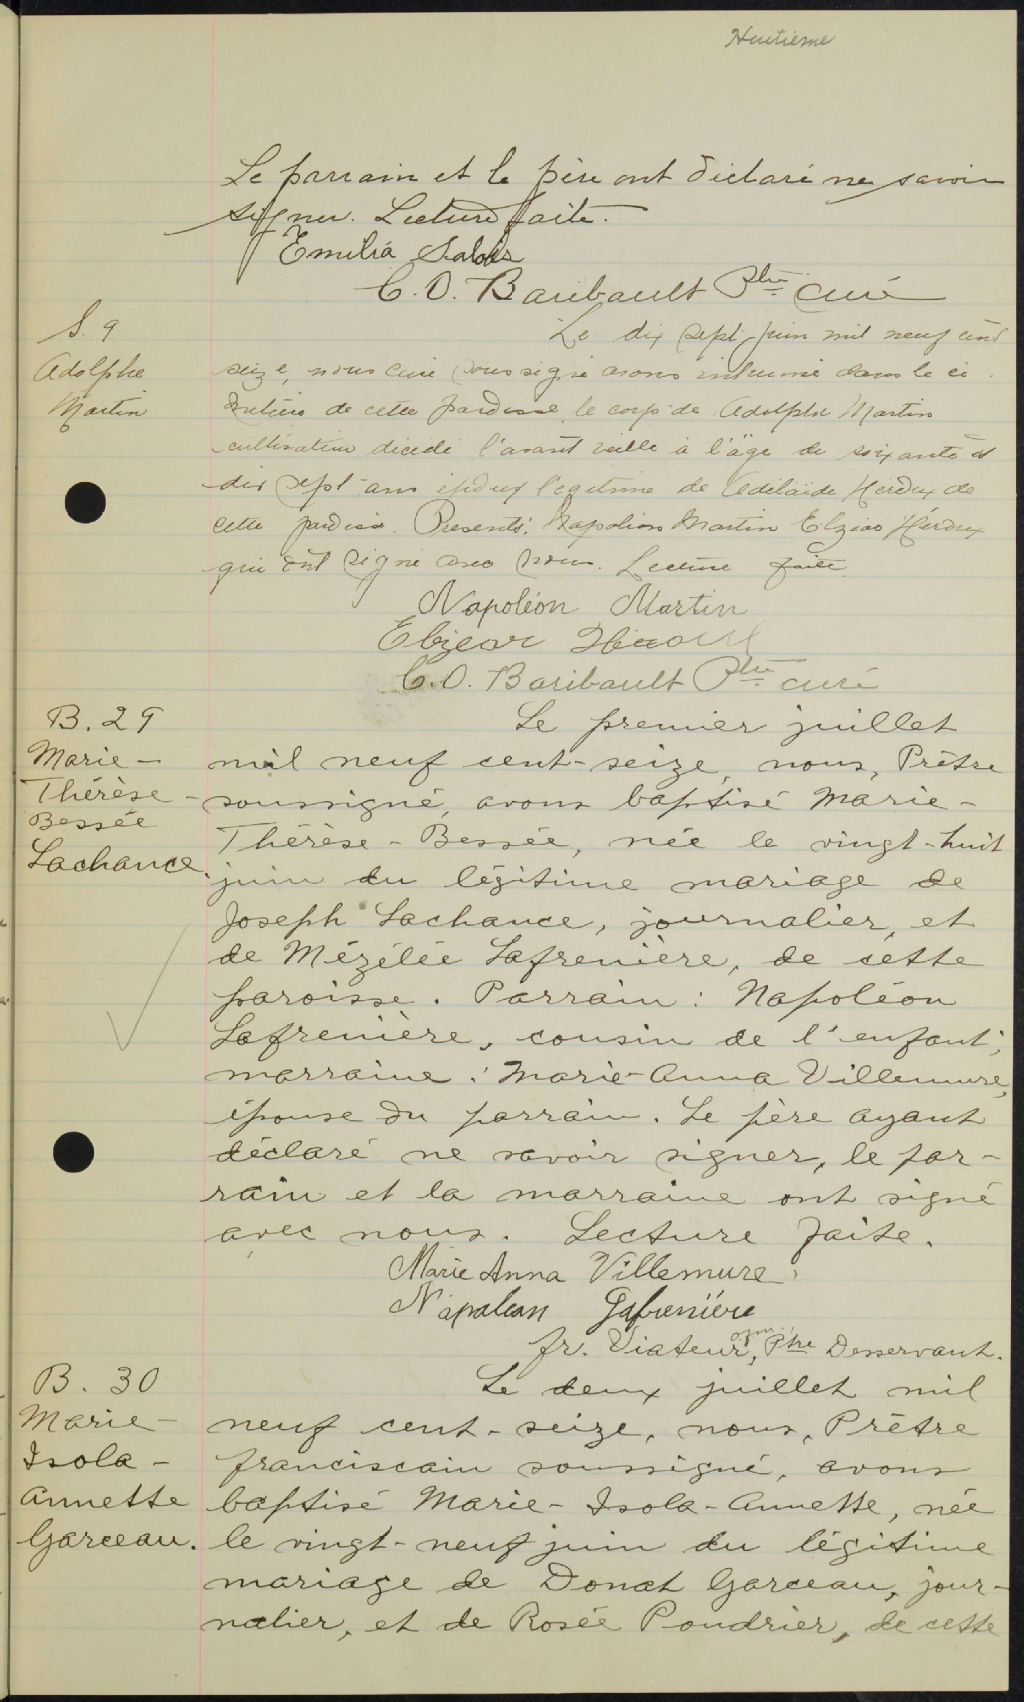 Huitième
Le parrain et le père ont déclaré ne savoir
signer. Lecture faite.
Emilia Salois
C. O. Baribault Ptre curé
S. 9
Adolphe
Martin
Le dix sept juin mil neuf cent
seize, nous curé soussigné avons inhumé dans le ci
metière de cette paroisse le corps de Adolphe Martin
cultivateur décédé l'avant veille à l'âge de soixante et
dix sept ans époux légitime de Adélaïde Héroux de
cette paroisse. Presents: Napoléon Martin Elzear Héroux
qui ont signé avec nous. Lecture faite
Napoléon Martin
Elzear Heroux
C. O. Baribault Ptre curé
B. 29
Marie-
Thérèse-
Bessée
Lachance.
Le premier juillet
mil neuf cent-seize, nous, Prêtre
soussigné, avons baptisé Marie-
Thérèse-Bessée, née le vingt-huit
juin du légitime mariage de
Joseph Lachance, journalier, et
de Mézélée Lafrenière, de cette
paroisse. Parrain: Napoléon
Lafrenière, cousin de l'enfant;
marraine: Marie-Anna Villemure,
épouse du parrain. Le père ayant
déclaré ne savoir signer, le par-
rain et la marraine ont signé
avec nous. Lecture faite.
Marie Anna Villemure
Napolean Lafrenière
fr. Viateur, ofm. Ptre Desservant.
B. 30
Marie-
Isola-
Annette
Garceau.
Le deux juillet mil
neuf cent-seize, nous, Prêtre
franciscain soussigné, avons
baptisé Marie-Isola-Annette, née
le vingt-neuf juin du légitime
mariage de Donat Garceau, jour-
nalier, et de Rosée Poudrier, de cette